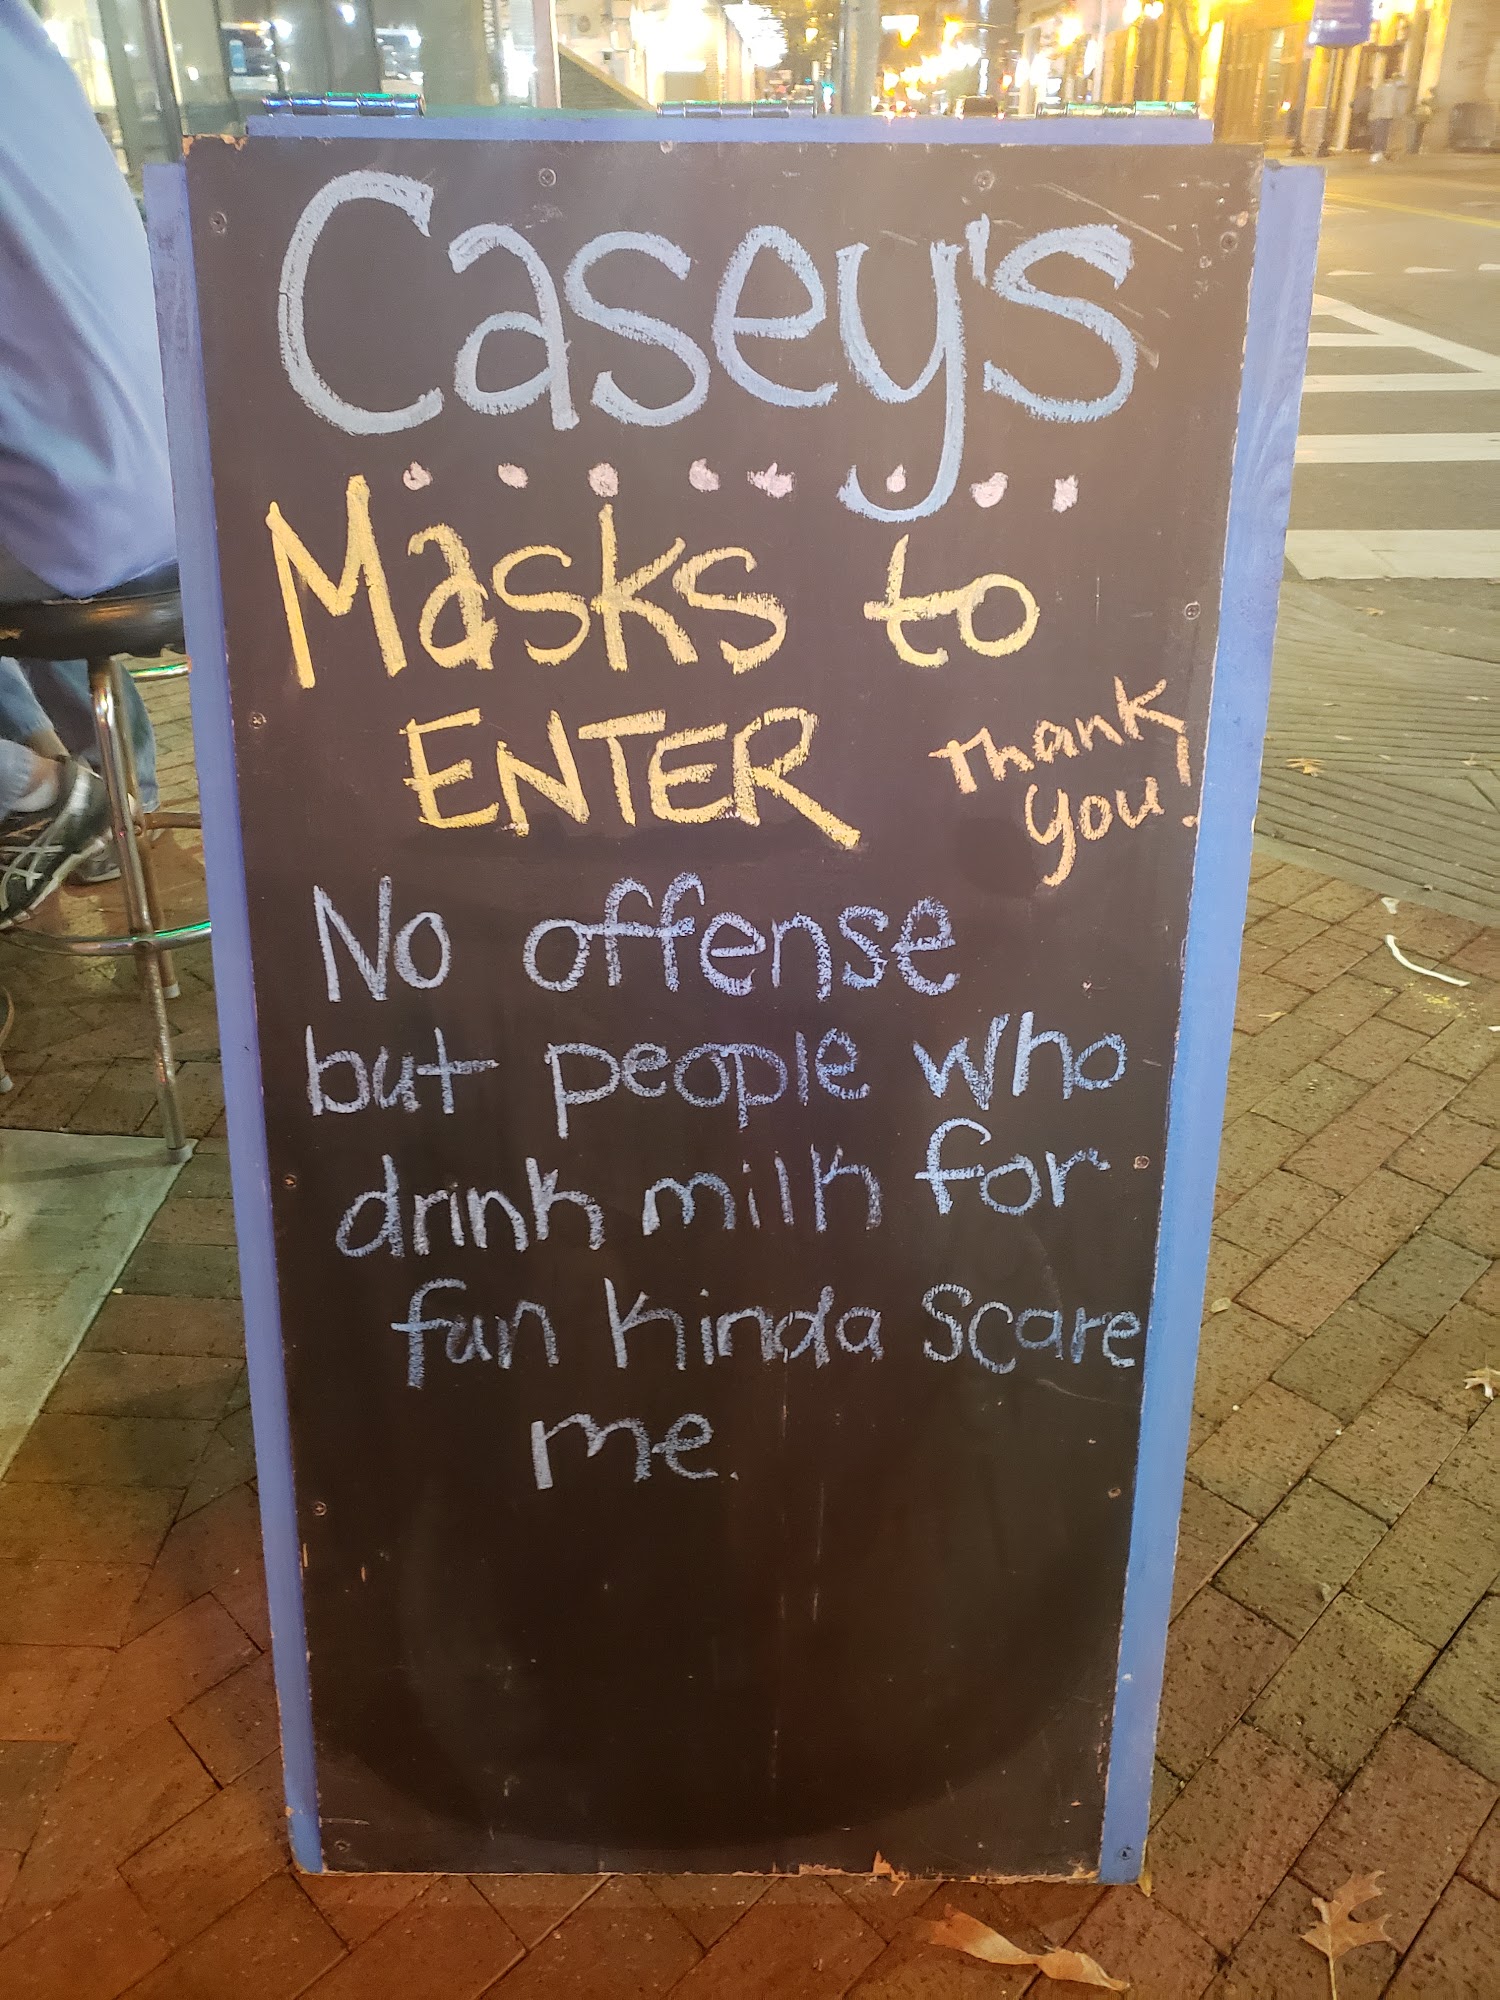 Casey's
Masks to
ENTER
Thank
you!
No offense
but people who
drink milk for
fun kinda scare
me.